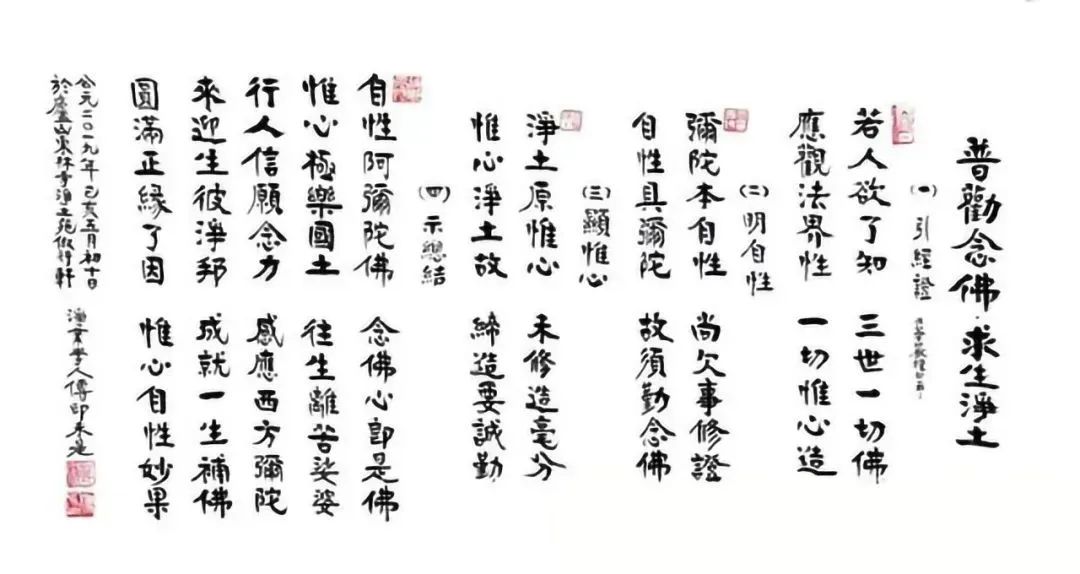 普勸念佛·求生淨土
(一) 引經證
若人欲了知 三世一切佛
應觀法界性 一切惟心造
(二) 明自性
彌陀本自性 尚欠事修證
自性具彌陀 故須勤念佛
(三) 顯惟心
淨土原惟心 未修造毫分
惟心淨土故 締造要誠勤
(四) 示總結
自性阿彌陀佛 念佛心即是佛
惟心極樂國土 往生離苦娑婆
行人信願念力 感應西方彌陀
來迎生彼淨邦 成就一生補佛
圓滿正緣了因 惟心自性妙果
公元二〇一九年己亥五月初十日
於廬山東林寺淨土苑
學人傳印